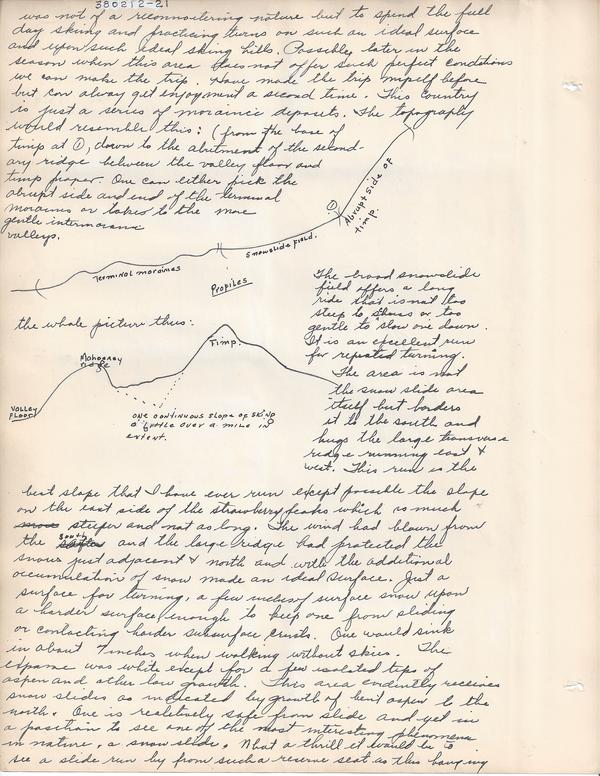 380212-21
was not of a reconnoitering nature but to spend the full
day skiing and practicing turns on such an ideal surface
and upon such ideal skiing hills. Possibley later in the
season when this area does not offer such perfect conditions
we can make the trip. Have made the trip myself before
but can alway get enjoyment a second time. This country
is just a series of morainic deposits. The topography
would resemble this: (from the base of
timp at ①, down to the abutment of the second-
ary ridge between the valley floor and
timp proper. One can either pick the
abrupt side and end of the terminal
morains or take to the more
gentle intermorainic
valleys.
①
Abrupt side of
timp.
Snowslide field.
Terminal moraines
Profiles
The broad snowslide
field offers a long
ride that is not too
steep to or too
gentle to slow one down.
It is an excellent run
for repeated turning.
The area is not
the snow slide area
itself but borders
it to the south and
hugs the large transverse
ridge running east &
west. This run is the
the whole picture thus:
Timp.
Mahogney
Valley
Floor
One continuous slope of skiing
a little over a mile in
extent.
best slope that I have ever run except possible the slope
on the east side of the strawberry peaks which is much
steeper and not as long. The wind had blown from
the south and the large ridge had protected the
snows just adjacent & north and with the additional
accumulation of snow made an ideal surface. Just a
surface for turning, a few inches of surface snow upon
a harder surface, enough to keep one from sliding
or contacting harder subsurface crusts. One would sink
in about 7 inches when walking without skies. The
expanse was white except for a few isolated tips of
aspen and other low growth. This area evidently receives
snow slides as indicated by growth of bent aspen to the
north. One is realitively safe from slide and yet in
a position to see one of the most interesting phenomena
in nature, a snow slide. What a thrill it would be to
see a slide run by from such a reserve seat as this having